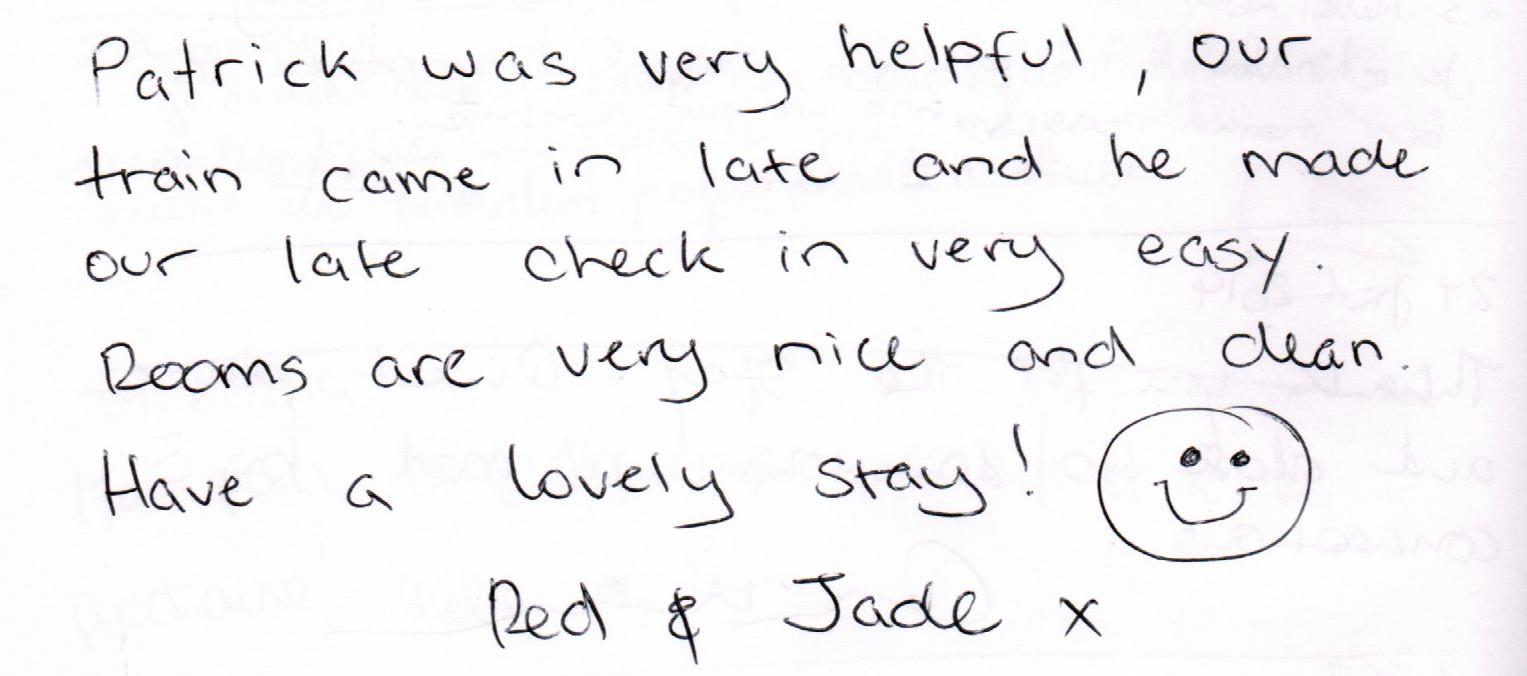 Patrick was very helpful, our
train came in late and he made
our late check in very easy.
Rooms are very nice and clean.
Have a lovely stay!
Red & Jade x